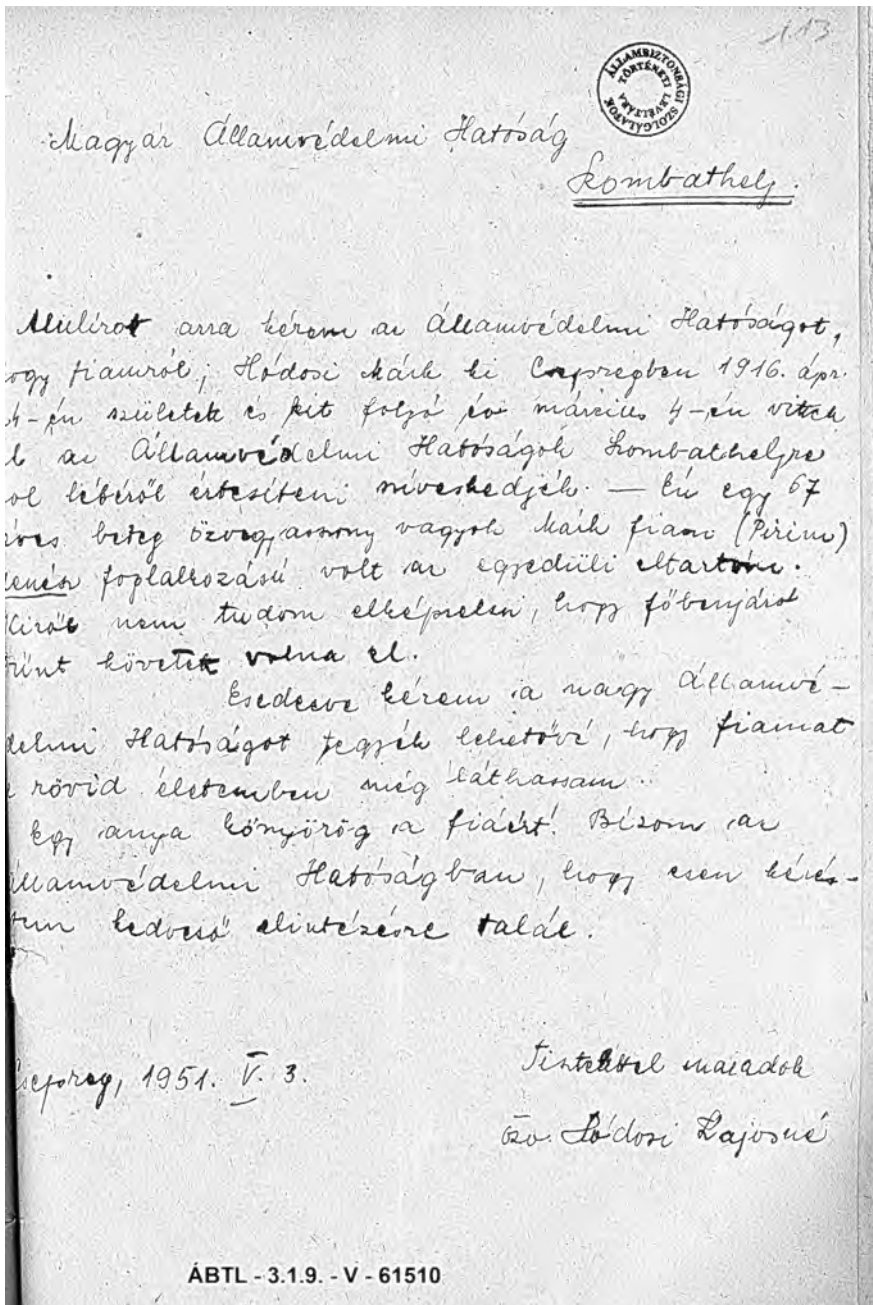 113
ÁLLAMBIZTONSÁGI SZOLGÁLATOK
TÖRTÉNETI LEVÉLTÁRA
Magyar Államvédelmi Hatóság
Szombathely.
Alulírott arra kérem az Államvédelmi Hatóságot,
ogy fiamról, Hódosi Márk ki Csepregben 1916. ápr.
4-én születek és kit folyó év március 4-én vittek
l az Államvédelmi Hatóságok Szombathelyre
ol létéről értesíteni szíveskedjék. — Én egy 67
éves beteg özvegyasszony vagyok Márk fiam (Pirim)
zenész foglalkozású volt az egyedüli eltartóm.
Kiről nem tudom elképzelni, hogy főbenjáró
bűnt követett volna el.
Esedezve kérem a nagy Államvé-
delmi Hatóságot tegyék lehetővé, hogy fiamat
e rövid életemben még láthassam.
Egy anya könyörög a fiáért! Bízom az
Államvédelmi Hatóságban, hogy ezen kérés-
em kedvező elintézésre talál.
Csepreg, 1951. V. 3.
Tisztelettel maradok
özv. Hódosi Lajosné
ÁBTL - 3.1.9. - V - 61510